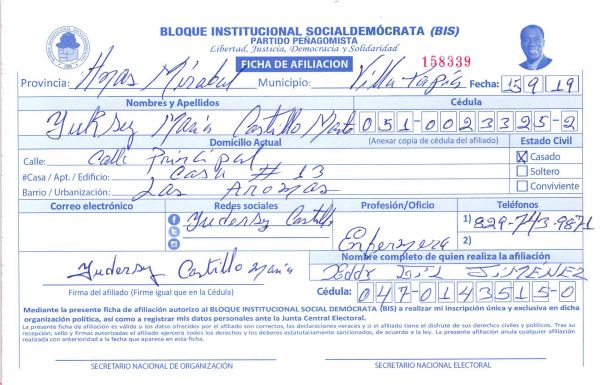 BLOQUE INSTITUCIONAL SOCIALDEMÓCRATA (BIS)
PARTIDO PEÑAGOMISTA
Libertad, Justicia, Democracia y Solidaridad
FICHA DE AFILIACION 158339
Provincia: Municipio: Villa Tapia Fecha: 15 9 19
Nombres y Apellidos Cédula
Castillo 051-0023325-2
Domicilio Actual (Anexar copia de cédula del afiliado) Estado Civil
Calle: Calle Principal Casado
#Casa / Apt. / Edificio: Casa # 13 Soltero
Barrio / Urbanización: Las Aromas Conviviente
Correo electrónico Redes sociales Profesión/Oficio Teléfonos
Yudersy Castillo 1) 829-743-9871
Enfermera 2)
Yudersy Castillo María Nombre completo de quien realiza la afiliación
JIMENEZ
Firma del afiliado (Firme igual que en la Cédula) Cédula: 047-0143515-0
Mediante la presente ficha de afiliación autorizo al BLOQUE INSTITUCIONAL SOCIAL DEMÓCRATA (BIS) a realizar mi inscripción única y exclusiva en dicha
organización política, así como a registrar mis datos personales ante la Junta Central Electoral.
La presente ficha de afiliación es válida si los datos ofrecidos por el afiliado son correctos, las declaraciones veraces y si el afiliado tiene el disfrute de sus derechos civiles y políticos. Tras su
recepción, sello y firmas autorizadas el afiliado ejercerá todos los derechos y los deberes estatutariamente sancionados, de acuerdo a la ley. La presente afiliación anula cualquier afiliación
realizada con anterioridad a la fecha que aparece en esta ficha.
SECRETARIO NACIONAL DE ORGANIZACIÓN SECRETARIO NACIONAL ELECTORAL